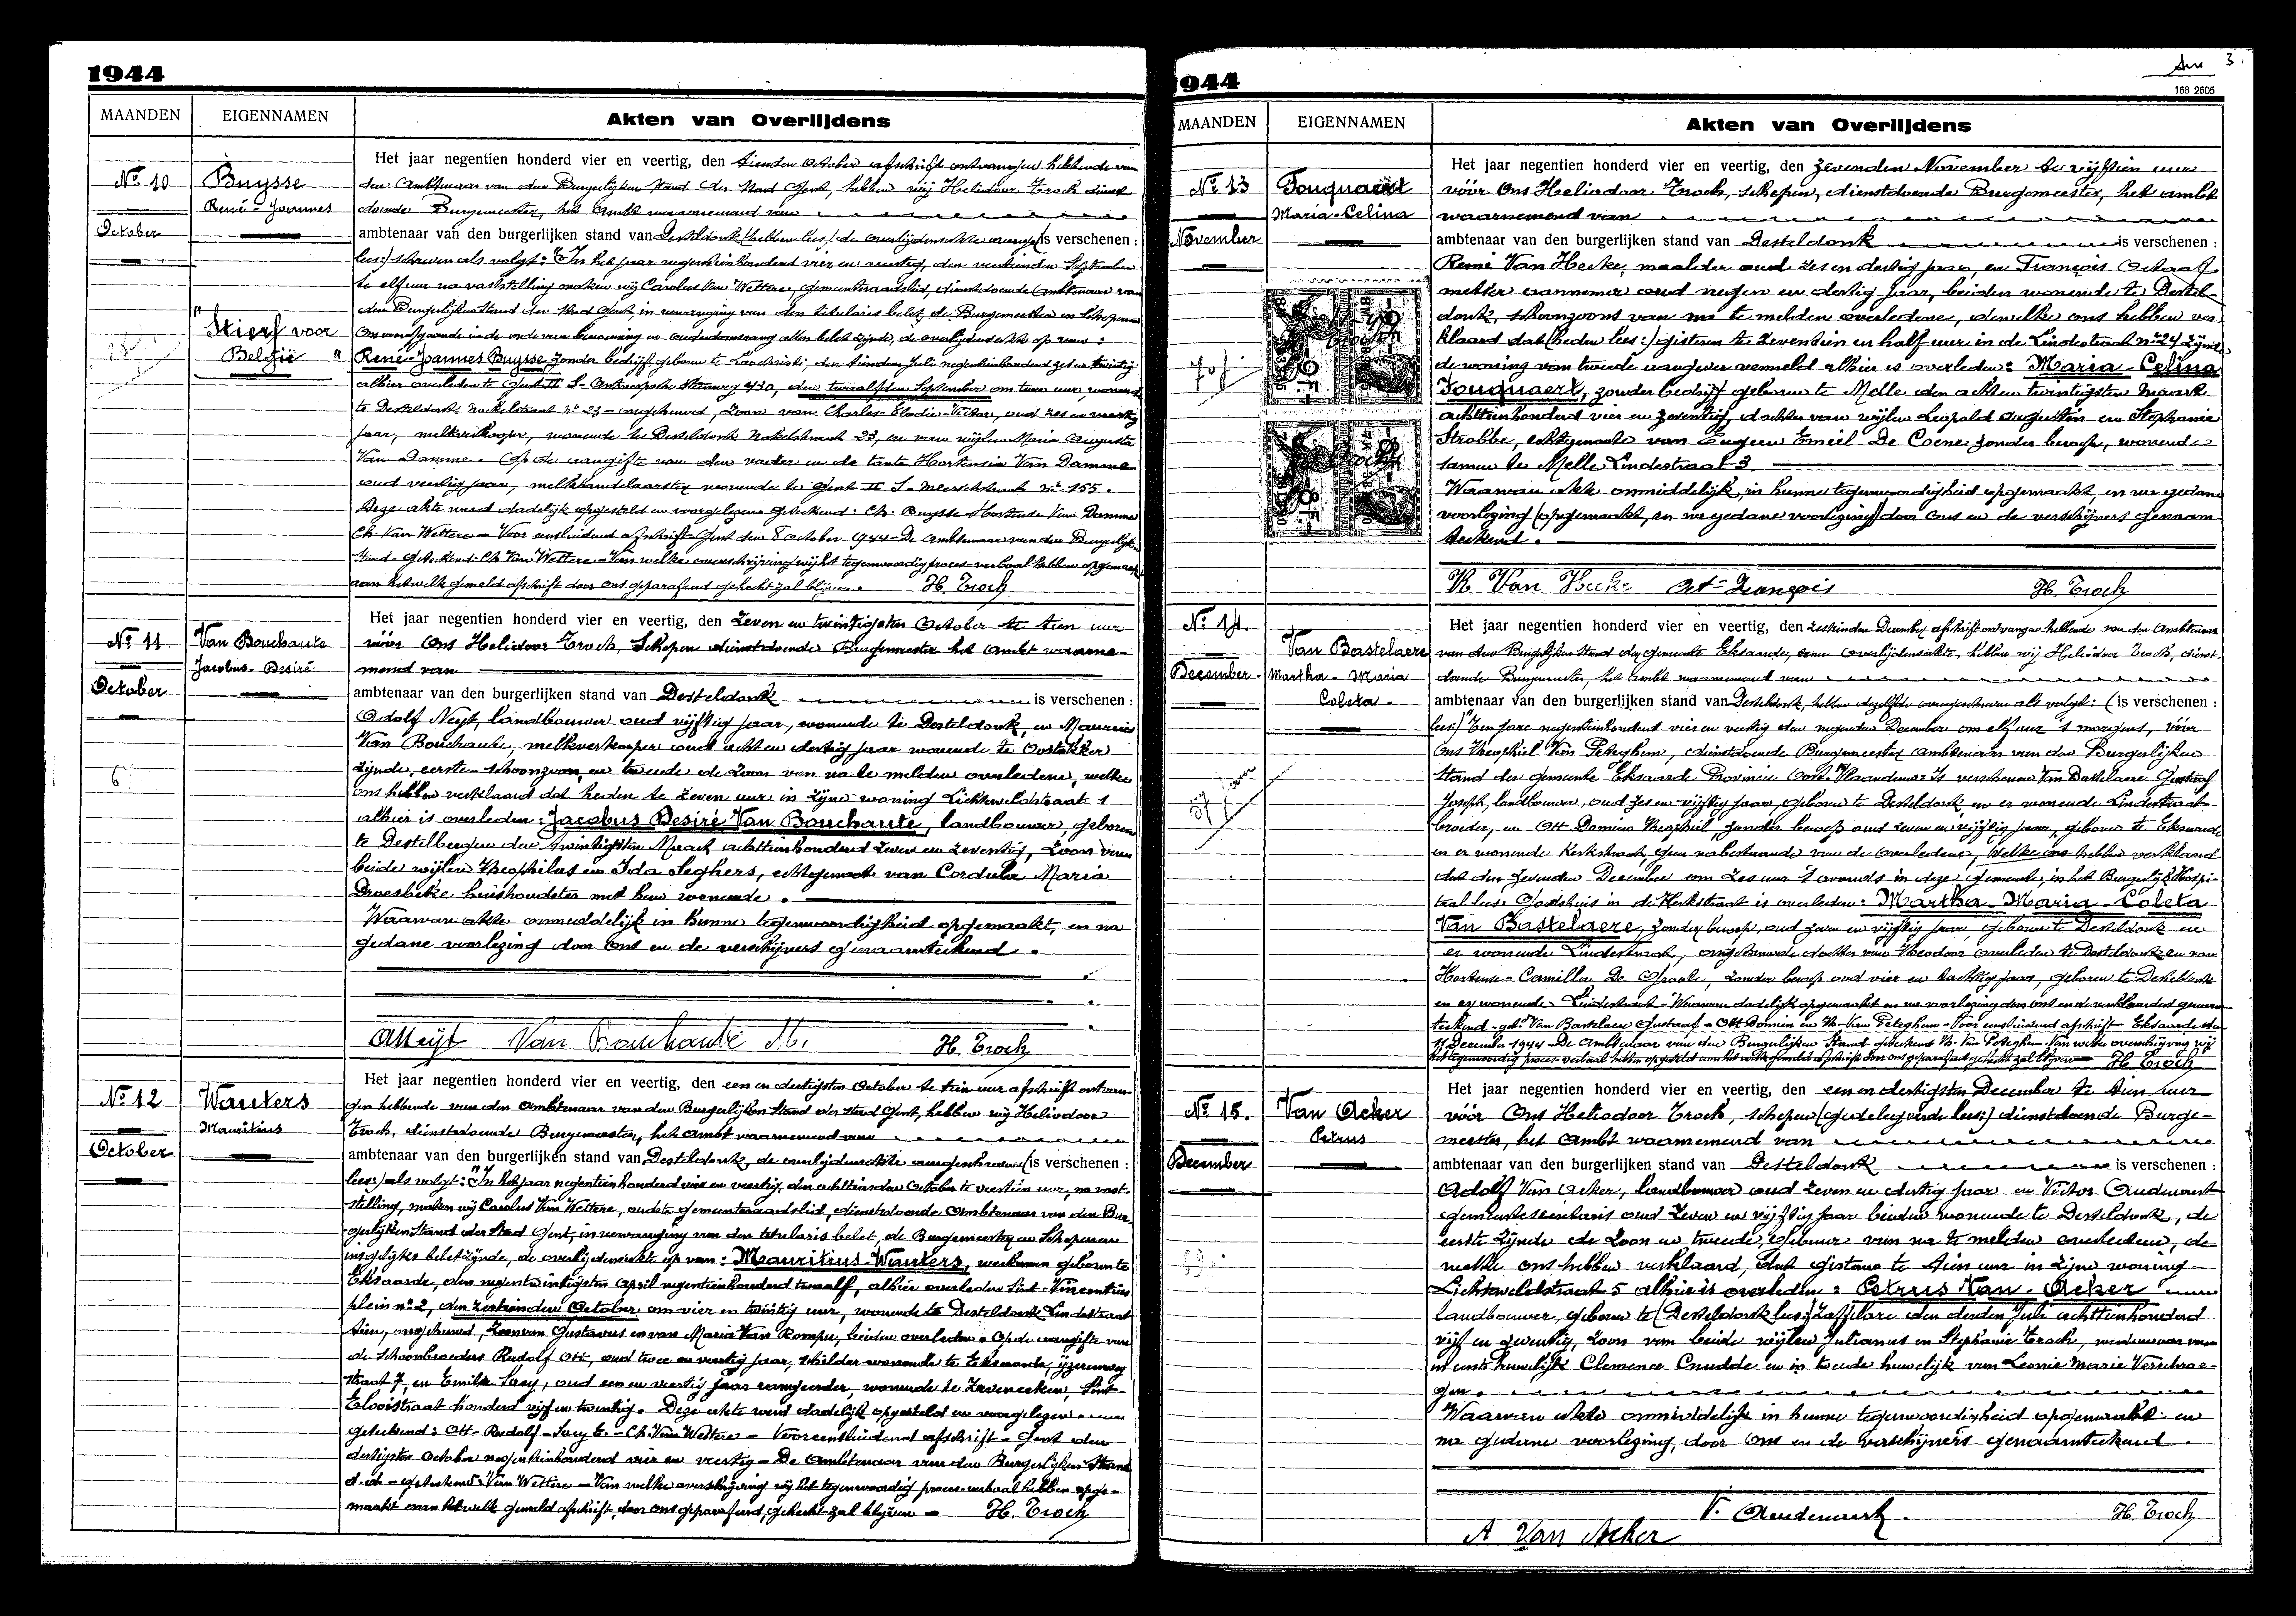 1944
MAANDEN
EIGENNAMEN
Akten van Overlijdens
No 10
October
Buysse
René-Joannes
"Stierf voor
België"
Het jaar negentien honderd vier en veertig, den tienden October afschrift ontvangen hebbende van
den Ambtenaar van den Burgerlijken Stand der Stad Gent, hebben wij Heliodoor Troch dienst
doende Burgemeester, het ambt waarnemend van
ambtenaar van den burgerlijken stand van Desteldonk (hebben lees) de overlijdensakte overge(is verschenen :
lees:) schreven als volgt: "In het jaar negentienhonderd vier en veertig, den veertienden September
te elf uur na vaststelling maken wij Carolus Van Wettere, gemeenteraadslid, dienstdoende Ambtenaar van
den Burgerlijken Stand der Stad Gent, in vervanging van den titularis belet, de Burgemeester en Schepenen
en in de orde van benoeming en ouderdomsrang allen belet zijnde, de overlijdensakte op van :
René-Joannes Buysse, zonder bedrijf geboren te Loochristi, den tienden Juli negentienhonderd zes en twintig
alhier overleden te Gent II S-Antwerpsche Steenweg 430, den twaalfden September om twee uur, wonende
te Desteldonk, Nokelstraat nr 23 - ongehuwd, zoon van Charles-Elodie-Victor, oud zes en veertig
jaar, melkverkooper, wonende te Desteldonk Nokelstraat 23, en van wijlen Maria Augusta
Van Damme. Op de aangifte van den vader en de tante Hortensia Van Damme
oud veertig jaar, melkhandelaarster wonende te Gent II S-Meerschstraat nr 155.
Deze akte werd dadelijk opgesteld en voorgelezen geteekend: Ch. Buysse Hortense Van Damme
Ch. Van Wettere - Voor eensluidend afschrift Gent den 8 October 1944 - De Ambtenaar van den Burgerlijken
Stand - geteekend Ch. Van Wettere - Van welke overschrijving wij het tegenwoordig proces-verbaal hebben opgemaakt
aan hetwelk gemeld afschrift door ons geparafeerd gehecht zal blijven. H. Troch
No 11
October
Van Bouchaute
Jacobus-Desiré
6
Het jaar negentien honderd vier en veertig, den zeven en twintigsten October te tien uur
vóór Ons Heliodoor Troch, Schepen dienstdoende Burgemeester het Ambt waarne-
mend van
ambtenaar van den burgerlijken stand van Desteldonk is verschenen :
Adolf Neyt, landbouwer oud vijftig jaar, wonende te Desteldonk, en Maurice
Van Bouchaute, melkverkooper oud acht en dertig jaar wonende te Oostakker
zijnde, eerste - schoonzoon, en tweede de zoon van na te melden overledene, welke
ons hebben verklaard dat heden te zeven uur in zijne woning Lichtelveldstraat 1
alhier is overleden: Jacobus Desiré Van Bouchaute, landbouwer, geboren
te Destelbergen den twintigsten Maart achttienhonderd zeven en zeventig, zoon van
beide wijlen Theophilus en Ida Seghers, echtgenoot van Cordula Maria
Droesbeke huishoudster met hem wonende.
Waarvan akte onmiddelijk in hunne tegenwoordigheid opgemaakt, en na
gedane voorlezing door Ons en de verschijners genaamteekend.
A Neyt Van Bouchaute M. H. Troch
No 12
October
Wauters
Mauritius
Het jaar negentien honderd vier en veertig, den een en dertigsten October te tien uur afschrift ontvan-
gen hebbende van den Ambtenaar van den Burgerlijken Stand der Stad Gent, hebben wij Heliodoor
Troch, dienstdoende Burgemeester, het ambt waarnemend van
ambtenaar van den burgerlijken stand van Desteldonk, de overlijdensakte overgeschreven (is verschenen :
lees:) als volgt: "In het jaar negentienhonderd vier en veertig, den achttienden October te veertien uur, na vast-
stelling, maken wij Carolus Van Wettere, oudste gemeenteraadslid, dienstdoende Ambtenaar van den Bur-
gerlijken Stand der Stad Gent, in vervanging van den titularis belet, de Burgemeester en Schepenen
insgelijks belet zijnde, de overlijdensakte op van: Mauritius-Wauters, werkman geboren te
Eksaarde, den negentwintigsten April negentienhonderd twaalf, alhier overleden Sint-Vincentius
plein nr 2, den zestienden October om vier en twintig uur, wonende te Desteldonk Lindestraat
tien, ongehuwd, zoon van Gustavus en van Maria Van Rompu, beiden overleden. Op de aangifte van
de schoonbroeders Rudolf Ott, oud twee en veertig jaar, schilder wonende te Eksaarde, ijzerenweg
straat 7, en Emile Saey, oud een en veertig jaar rangeerder, wonende te Zeveneeken, Sint-
Elooistraat honderd vijf en twintig. Deze akte werd dadelijk opgesteld en voorgelezen
geteekend: Ott-Rudolf-Saey E.-Ch. Van Wettere - Voor eensluidend afschrift - Gent den
dertigsten October negentienhonderd vier en veertig - De Ambtenaar van den Burgerlijken Stand
- geteekend: Van Wettere - Van welke overschrijving wij het tegenwoordig proces-verbaal hebben opge-
maakt aan hetwelk gemeld afschrift, door ons geparafeerd, gehecht zal blijven - H. Troch
1944
3.
168 2605
MAANDEN
EIGENNAMEN
Akten van Overlijdens
No 13
November
Fouquaert
Maria-Celina
Het jaar negentien honderd vier en veertig, den zevenden November te vijftien uur
vóór Ons Heliodoor Troch, schepen, dienstdoende Burgemeester, het ambt
waarnemend van
ambtenaar van den burgerlijken stand van Desteldonk is verschenen :
René Van Hecke, maalder oud zes en dertig jaar, en François Octaaf
metser aannemer oud negen en dertig jaar, beiden wonende te Destel-
donk, schoonzoons van na te melden overledene, dewelke ons hebben ver
klaard dat (heden lees:) gisteren te zeventien en half uur in de Lindestraat nr 24 zijnde
de woning van tweede aangever vermeld alhier is overleden: Maria-Celina
Fouquaert, zonder bedrijf geboren te Melle den achten twintigsten Maart
achttienhonderd vier en zeventig, dochter van wijlen Leopold Augustin en Stephanie
Strobbe, echtgenoote van Eugeen Emiel De Coene zonder beroep, wonende
samen te Melle Lindestraat 3
Waarvan akte onmiddelijk, in hunne tegenwoordigheid opgemaakt, en na gedane
voorlezing (opgemaakt, en na gedane voorlezing) door Ons en de verschijners genaam-
teekend.
R. Van Hecke Oct-François H. Troch
No 14.
December
Van Bastelaere
Martha-Maria
Coleta.
Het jaar negentien honderd vier en veertig, den zestienden December afschrift ontvangen hebbende van den Ambtenaar
van den Burgerlijken Stand der gemeente Eksaarde, eener overlijdensakte, hebben wij Heliodoor Troch, dienst-
doende Burgemeester, het ambt waarnemend van
ambtenaar van den burgerlijken stand van Desteldonk, hebben dezelfde overgeschreven als volgt: (is verschenen :
lees:) "Ten jare negentienhonderd vier en veertig den negenden December om elf uur 's morgens, vóór
Ons Theophiel Van Peteghem, dienstdoende Burgemeester Ambtenaar van den Burgerlijken
Stand der gemeente Eksaarde Provincie Oost-Vlaanderen: Is verschenen Van Bastelaere Gustaaf
Joseph, landbouwer, oud zes en vijftig jaar, geboren te Desteldonk, en er wonende Lindestraat
broeder, en Ott Domien Theophiel, zonder beroep oud zeven en vijftig jaar, geboren te Eksaarde
en er wonende Kerkstraat, geen nabestaande van de overledene, welke ons hebben verklaard
dat den zevenden December om zes uur 's avonds in deze gemeente, in het Burgerlijk Hospi-
taal lees: Godshuis in de Kerkstraat is overleden: Martha-Maria-Coleta
Van Bastelaere, zonder beroep, oud zeven en vijftig jaar, geboren te Desteldonk en
er wonende Lindestraat, ongehuwde dochter van Theodoor overleden te Desteldonk en van
Hortense-Camilla De Graeve, zonder beroep oud vier en tachtig jaar, geboren te Desteldonk
en er wonende Lindestraat - Waarvan dadelijk opgemaakt en na voorlezing door ons en de verklaarders genaam-
teekend - get. Van Bastelaere Gustaaf - Ott Domien en Th. Van Peteghem - Voor eensluidend afschrift Eksaarde den
11 December 1944 - De Ambtenaar van den Burgerlijken Stand geteekend Th. Van Peteghem. Van welke overschrijving wij
het tegenwoordig proces-verbaal hebben opgesteld aan het welk gemeld afschrift door ons geparafeerd gehecht zal blijven - H. Troch
No 15.
December
Van Acker
Petrus
Het jaar negentien honderd vier en veertig, den een en dertigsten December te tien uur
vóór Ons Heliodoor Troch, schepen (gedelegeerde lees:) dienstdoende Burge-
meester, het Ambt waarnemend van
ambtenaar van den burgerlijken stand van Desteldonk is verschenen :
Adolf Van Acker, landbouwer oud zeven en dertig jaar en Victor Audenaert
gemeentesecretaris oud zeven en vijftig jaar beiden wonende te Desteldonk, de
eerste zijnde de zoon en tweede, gebuur van na te melden overledene, de
welke ons hebben verklaard, dat gisteren te tien uur in zijne woning
Lichtelveldstraat 5 alhier is overleden: Petrus Van Acker
landbouwer, geboren te (Desteldonk lees:) Zaffelare den derden Juli achttienhonderd
vijf en zeventig, zoon van beide wijlen Julianus en Stephanie Troch, weduwnaar van
in eerste huwelijk Clemence Cnudde en in tweede huwelijk van Leonie Marie Verschrae-
gen.
Waarvan akte onmiddelijk in hunne tegenwoordigheid opgemaakt en
na gedane voorlezing, door Ons en de verschijners genaamteekend.
V. Audenaert. H. Troch
A Van Acker